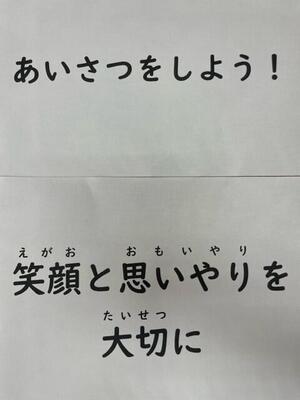 あいさつをしよう！
えがお おもいやり
笑顔と思いやりを
たいせつ
大切に